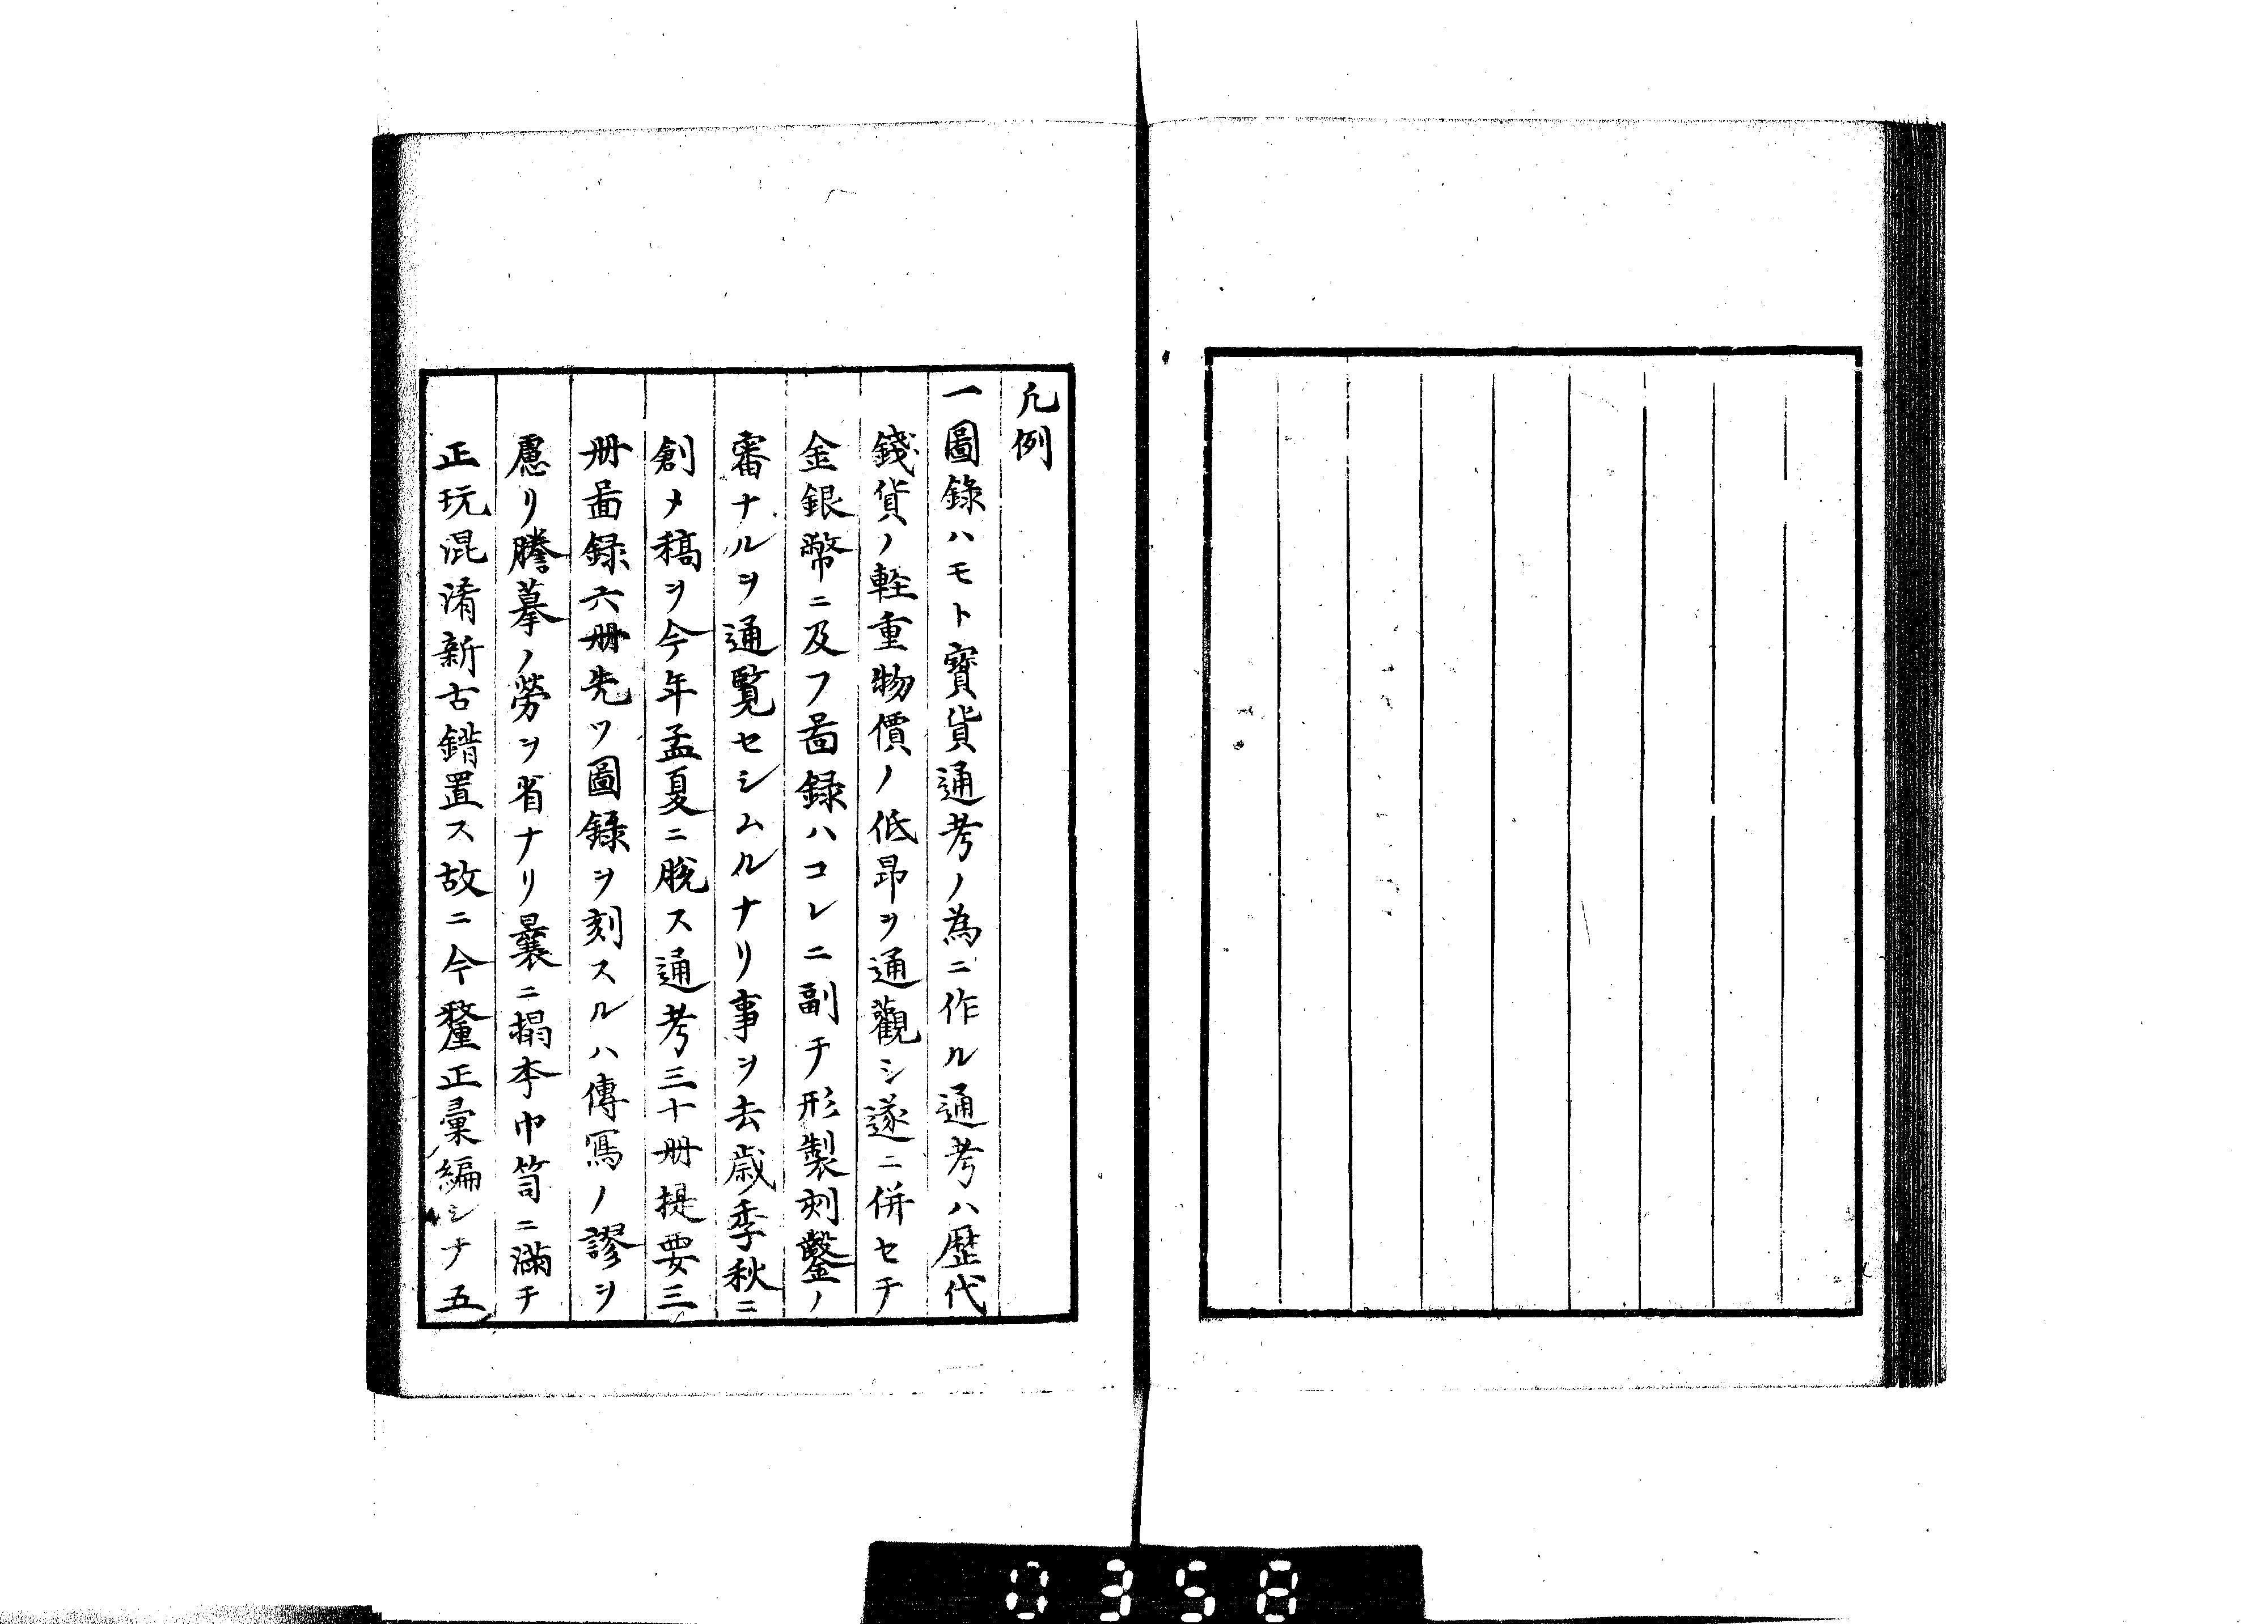 凡例
一圖錄ハモト寶貨通考ノ為ニ作ル通考ハ歷代
錢貨ノ軽重物價ノ低昂ヲ通觀シ遂ニ併セテ
金銀幣ニ及フ啚録ハコレニ副テ形製刻鑿ノ
審ナルヲ通覧セシムルナリ事ヲ去歲季秋ニ
創メ稿ヲ今年孟夏ニ脫ス通考三十册提要三
册啚録六册先ツ圖錄ヲ刻スルハ傳寫ノ謬ヲ
慮リ謄摹ノ勞ヲ省ナリ曩ニ搨本巾笥ニ滿テ
正玩混淆新古錯置ス故ニ今釐正彙編シテ五
0358